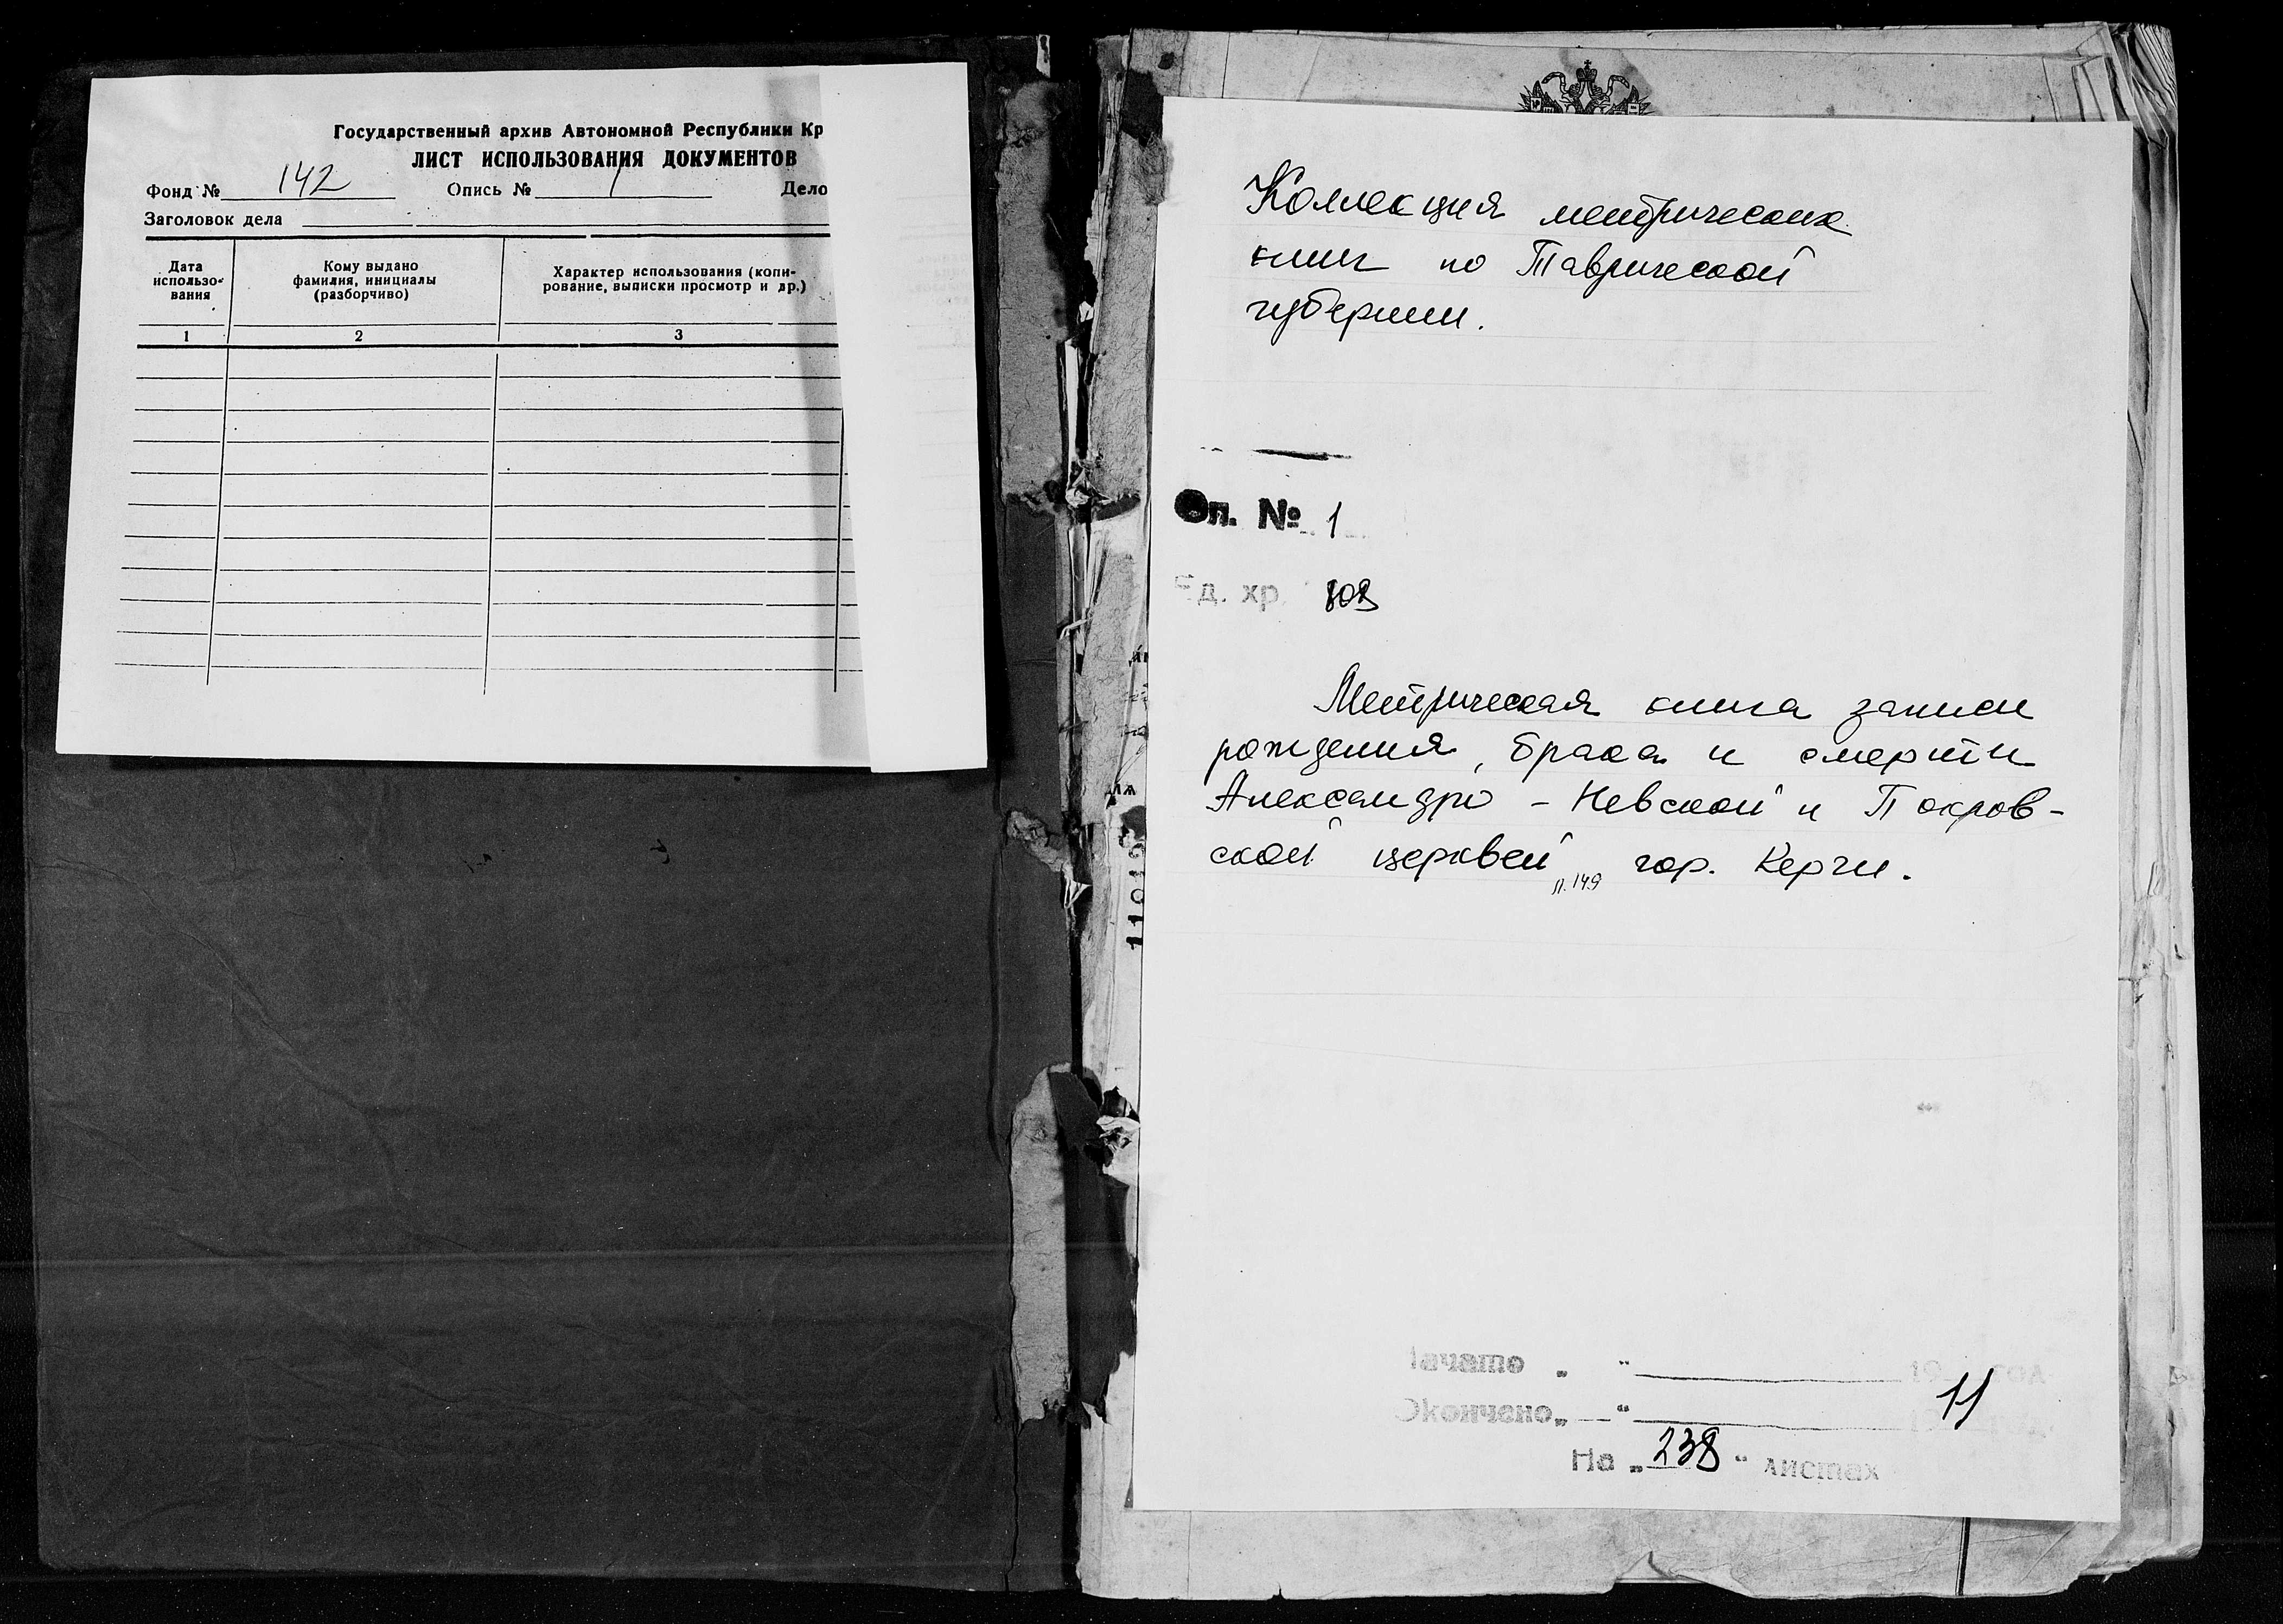 Государственный архив Автономной Республики Кр
ЛИСТ ИСПОЛЬЗОВАНИЯ ДОКУМЕНТОВ
Фонд № 142 Опись № 1 Дело
Заголовок дела
Дата использо-вания
Кому выдано фамилия, инициалы (разборчиво)
Характер использования (копи-рование, выписки просмотр и др.)
1 2 3
Коллекция метрических
книг по Таврической
губернии.
Оп. № 1
Ед. хр.
Метрическая книга записи
рождения, брака и смерти
Александро - Невской и Покров-
ской церквей гор. Керчи.
л. 149
Начато „ “ 19 год
Окончено „ “
11
На „ 238 “ листах